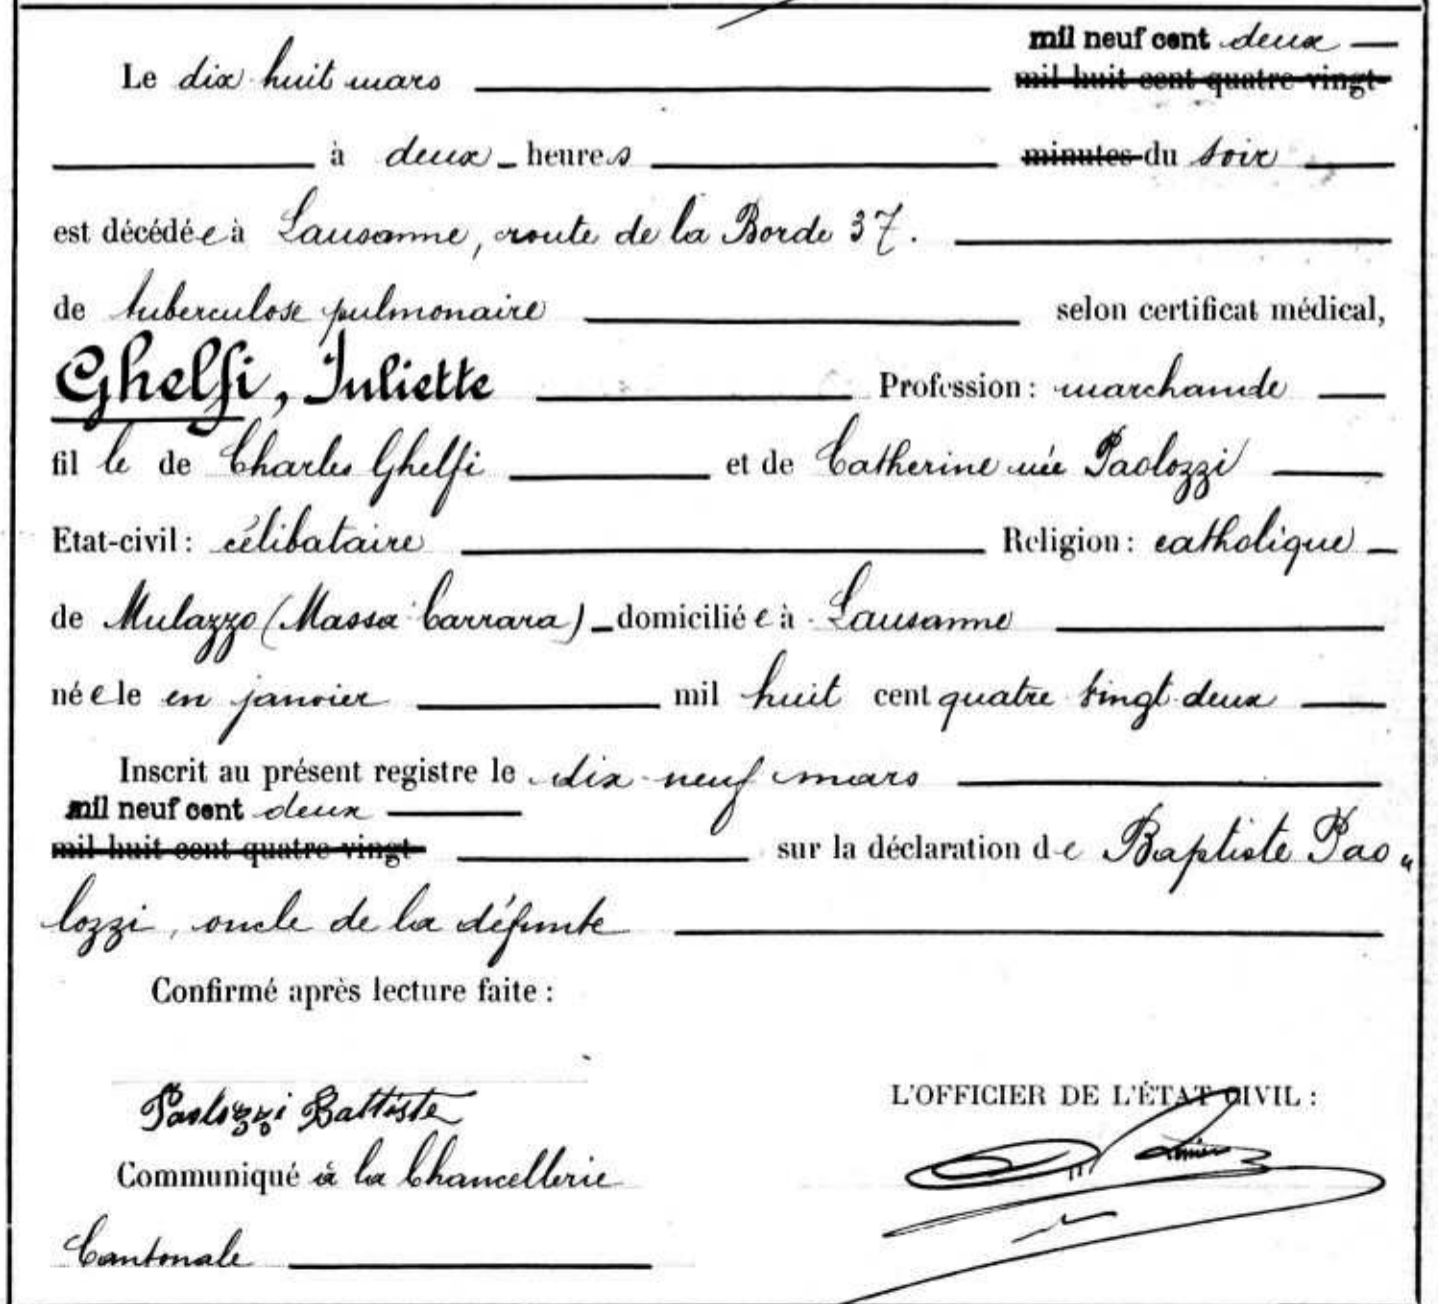 mil neuf cent deux
Le dix huit mars mil huit cent quatre-vingt-
à deux heures minutes du soir
est décédée à Lausanne, route de la Borde 37.
de tuberculose pulmonaire selon certificat médical,
Ghelfi, Juliette Profession : marchande
fille de Charles Ghelfi et de Catherine née Paolozzi
Etat-civil : célibataire Religion : catholique
de Mulazzo (Massa Carrara) domiciliée à Lausanne
née le en janvier mil huit cent quatre vingt-deux
Inscrit au présent registre le dix-neuf mars
mil neuf cent deux
mil huit cent quatre-vingt- sur la déclaration de Baptiste Pao„
lozzi, oncle de la défunte
Confirmé après lecture faite :
Paolozzi Battiste
L'OFFICIER DE L'ÉTAT CIVIL :
Communiqué à la Chancellerie
Cantonale